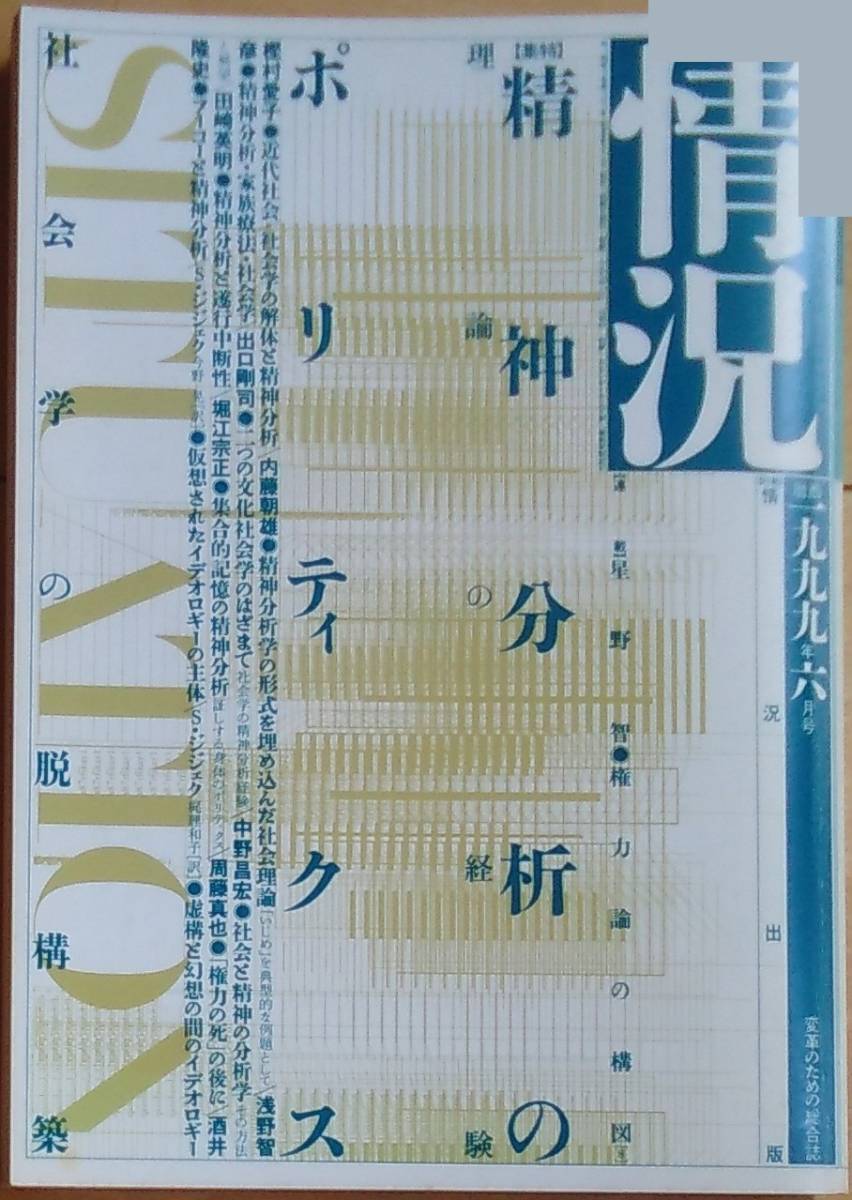 情況
一九九九年六月号
変革のための総合誌
情況出版
【特集】
精神分析の
ポリティクス
理論の経験
社会学の脱構築
SITUATION
【連載】星野智●権力論の構図
樫村愛子●近代社会・社会学の解体と精神分析/内藤朝雄●精神分析学の形式を埋め込んだ社会理論[「いじめ」を典型的な例題として]/浅野智
彦●精神分析・家族療法・社会学/出口剛司●二つの文化社会学のはざまで 社会学の精神分析経験/中野昌宏●社会と精神の分析学 その方法
田崎英明●精神分析と遂行中断性/堀江宗正●集合的記憶の精神分析 証しする身体のポリティクス/周藤真也●「権力の死」の後に/酒井
隆史●フーコーと精神分析/S・ジジェク[訳]●仮想されたイデオロギーの主体/S・ジジェク 梶理和子[訳]●虚構と幻想の間のイデオロギー